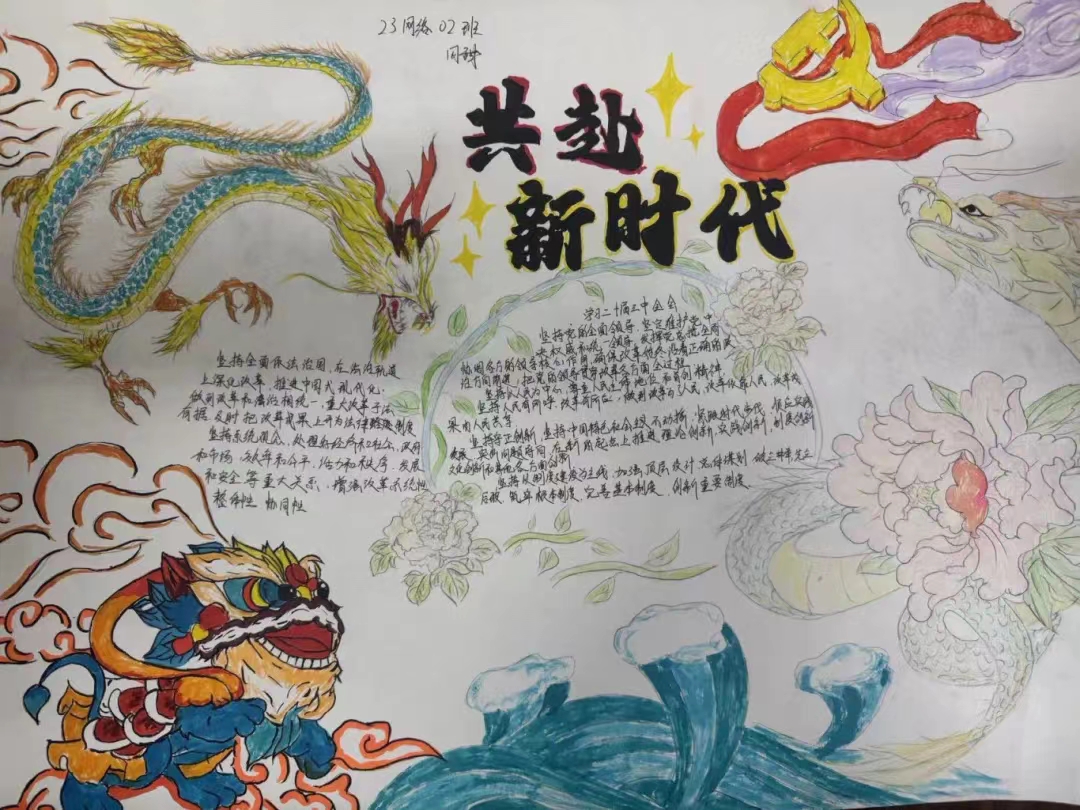 23网络02班
共赴
新时代
学习二十届三中全会
坚持党的全面领导,坚定维护党中
央权威和统一领导,发挥党总揽全局
协调各方的领导核心作用,确保改革始终沿着正确政
治方向前进
坚持以人民为中心,尊重人民主体地位和首创精神
坚持人民有所呼、改革有所应,做到改革为了人民,改革依靠人民,改革成
果由人民共享
坚持守正创新,坚持中国特色社会主义不动摇,紧跟时代步伐,顺应实践
发展,突出问题导向,在新的起点上推进理论创新,实践创新,制度创新
文化创新和其他各方面创新
坚持以制度建设为主线,加强顶层设计,总体谋划,破立并举,先立
后破,筑牢根本制度,完善基本制度,创新重要制度.
坚持全面依法治国,在法治轨道
上深化改革、推进中国式现代化,
做到改革和法治相统一,重大改革于法
有据、及时把改革成果上升为法律制度
坚持系统观念,处理好经济和社会,政府
和市场,效率和公平,活力和秩序,发展
和安全等重大关系,增强改革系统性
整体性 协同性